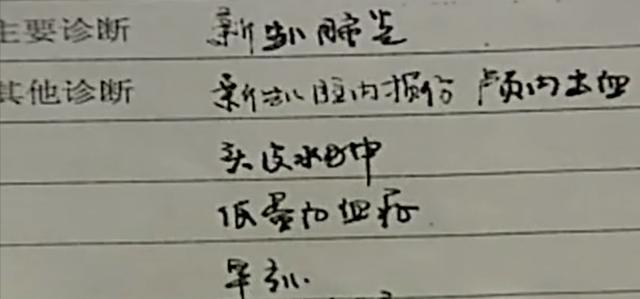 主要诊断 新生儿肺炎
其他诊断 新生儿颅内损伤 颅内出血
头皮水肿
低蛋白血症
早产儿